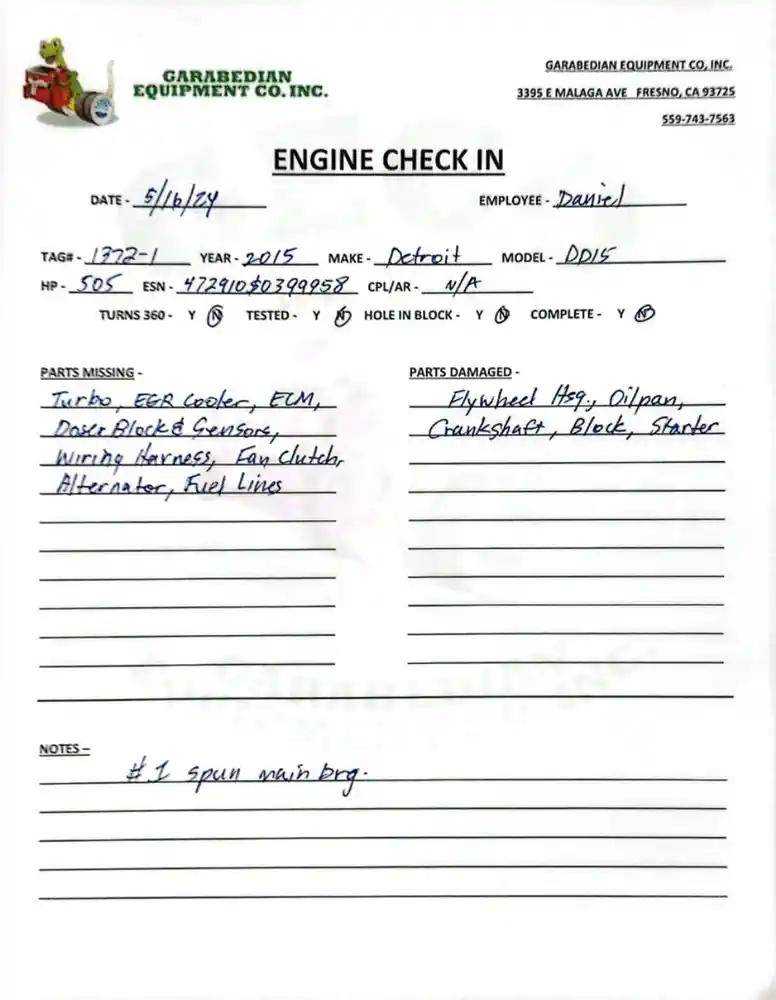 GARABEDIAN
EQUIPMENT CO. INC.
GARABEDIAN EQUIPMENT CO, INC.
3395 E MALAGA AVE FRESNO, CA 93725
559-743-7563
ENGINE CHECK IN
DATE - 5/16/24 EMPLOYEE - Daniel
TAG# - 1372-1 YEAR - 2015 MAKE - Detroit MODEL - DD15
HP - 505 ESN - 472910S0399958 CPL/AR - N/A
TURNS 360 - Y N TESTED - Y N HOLE IN BLOCK - Y N COMPLETE - Y N
PARTS MISSING -
Turbo, EGR Cooler, ECM,
Doser Block & Sensors,
Wiring Harness, Fan Clutch,
Alternator, Fuel Lines
PARTS DAMAGED -
Flywheel Hsg., Oilpan,
Crankshaft, Block, Starter
NOTES –
#1 spun main brg.